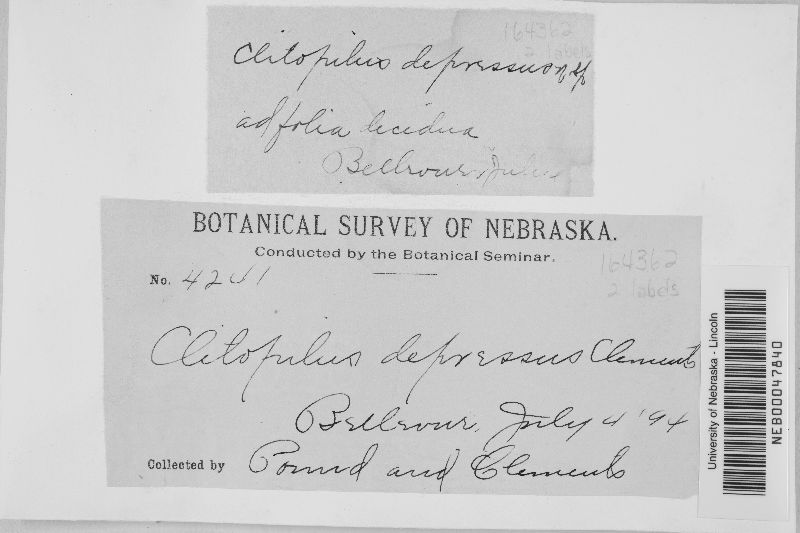 164362
2 labels
Clitopilus depressus n sp
ad folia decidua
Bellevue, July
BOTANICAL SURVEY OF NEBRASKA.
Conducted by the Botanical Seminar.
164362
No. 4241
2 labels
Clitopilus depressus Clements
Bellevue, July 4 '94
Collected by Pound and Clements
University of Nebraska - Lincoln
NEB00047840